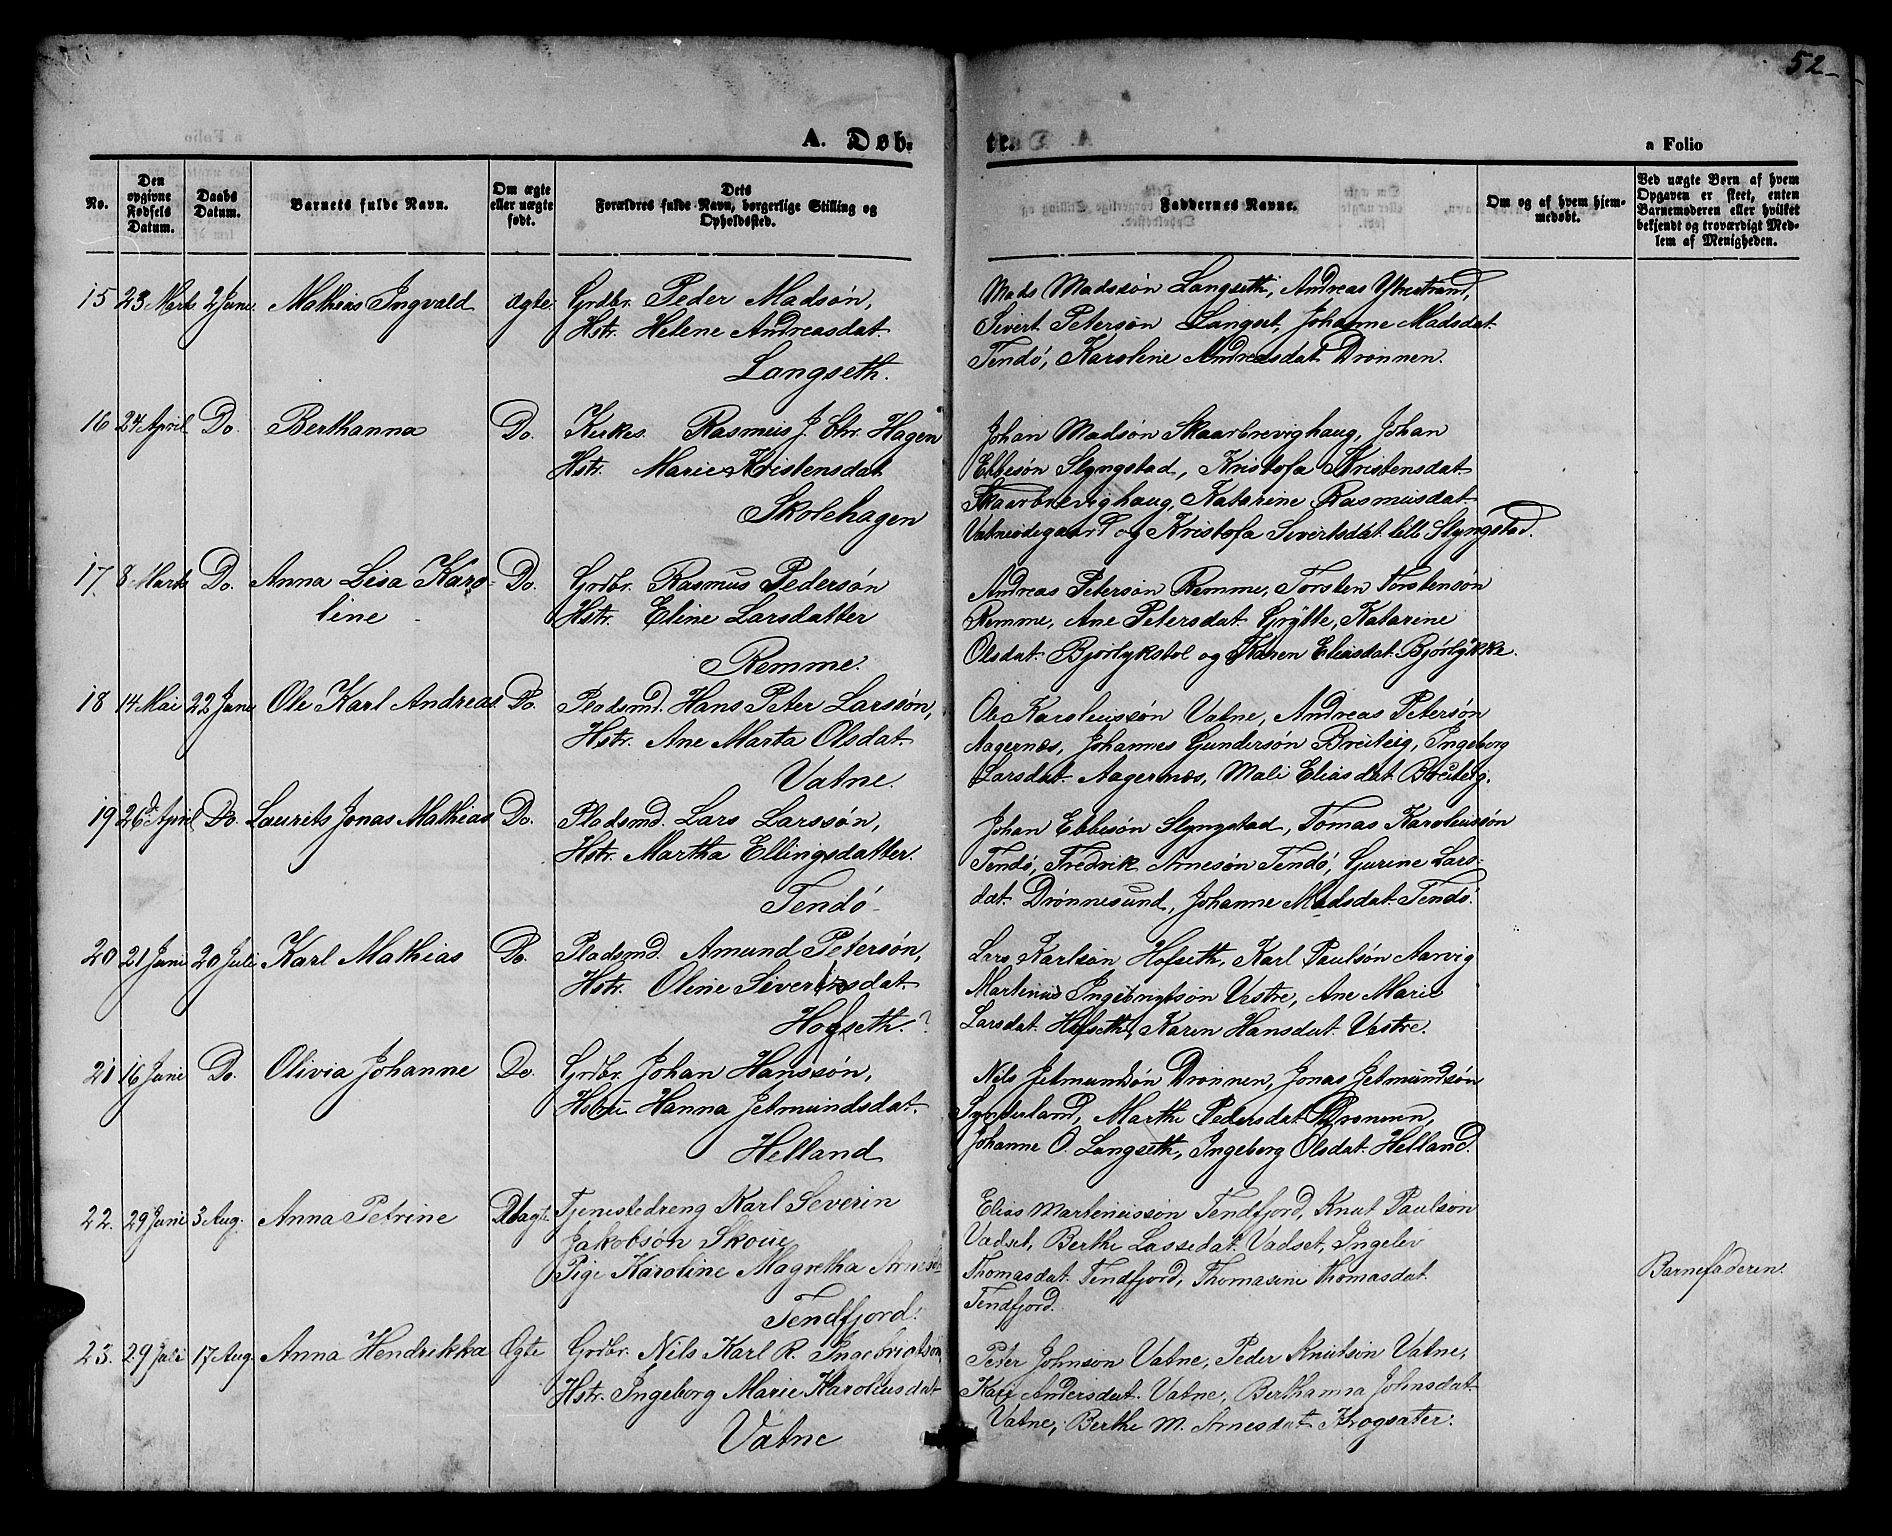 52
A. Døb-
te.
a Folio
No.
Den opgivne Fødsels Datum.
Daabs Datum.
Barnets fulde Navn.
Om ægte eller uægte født.
Dets Forældres fulde Navn, borgerlige Stilling og Opholdssted.
Faddernes Navne.
Om og af hvem hjemmedøbt.
Ved uægte Børn af hvem Opgaven er skeet, enten Barnemoderen eller hvilket bekjendt og troværdigt Medlem af Menigheden.
15 23 Marts 2 Juni Mathias Ingvald ægte Grdbr. Peder Madsøn,
Hstr. Helene Andreasdat.
Langseth.
Mads Madssøn Langseth, Andreas Ytrestrand,
Sivert Petersøn Langset, Johanne Madsdat.
Tendø, Karoline Andreasdat. Drønnen.
16 24 April Do. Berthanna Do. Kirkes. Rasmus J. Chr. Hagen
Hstr. Marie Kristensdat.
Skolehagen
Johan Madsøn Skaarbrevighaug, Johan
Ebbesøn Slyngstad, Kristofa Kristensdat.
Skaarbrevighaug, Katarine Rasmusdat.
Vatneødegaard og Kristofa Sivertsdat. lille Slyngstad.
17. 8 Marts Do. Anna Lisa Karo- Do. Grdbr. Rasmus Pedersøn
line Hstr. Eline Larsdatter
Remme.
Andreas Petersøn Remme, Torsten Torstensøn
Remme, Ane Petersdat. Grytte, Katarine
Olsdat. Bjørlykstøl og Karen Eliasdat. Bjørlykke.
18 14 Mai 22 Juni Ole Karl Andreas Do. Pladsmd. Hans Peter Larssøn,
Hstr. Ane Marta Olsdat.
Vatne.
Ole Karoliussøn Vatne, Andreas Petersøn
Aagernæs, Johannes Gundersøn Breiteig, Ingeborg
Larsdat. Aagernæs, Mali Eliasdat. Breiteig.
19 26d. April Do. Laurits Jonas Mathias Do. Pladsmd. Lars Larssøn,
Hstr. Martha Ellingsdatter.
Tendø
Johan Ebbesøn Slyngstad, Tomas Karoliussøn
Tendø, Fredrik Arnesøn Tendø, Gurine Lars-
dat. Drønnesund, Johanne Madsdat. Tendø.
20 21 Juni 20 Juli Karl Mathias Do. Pladsmd. Amund Petersøn,
Hstr. Oline Sivertsdat.
Hofseth.?
Lars Karlsøn Hofseth, Karl Paulsøn Aarvig
Martinus Ingebrigtsøn Vestre, Ane Marie
Larsdat. Hofseth, Karen Hansdat. Vestre.
21 16 Juni Do. Olivia Johanne Do. Grdbr. Johan Hanssøn,
Hstru Hanna Jetmundsdat.
Helland
Nils Jetmundsøn Drønnen, Jonas Jetmundsøn
Synderland, Marthe Pedersdat. Drønnen,
Johanne O. Langseth, Ingeborg Olsdat. Helland.
22. 29 Juni 3 Aug. Anna Petrine Uægte Tjenestedreng Karl Severin
Jakobsøn Skoue
Pige Karoline Magretha Arnesdt.
Tendfjord.
Elias Martinussøn Tendfjord, Knut Paulsøn
Vadset, Berthe Lassedat. Vadset, Ingelev
Thomasdat. Tendfjord, Thomasine Thomasdat.
Tendfjord.
Barnefaderen.
23. 29 Juli 17 Aug. Anna Hendrikka Ægte Grdbr. Nils Karl R. Ingebrigtsøn,
Hstr. Ingeborg Marie Karoliusdat.
Vatne
Peter Johnsøn Vatne, Peder Knutsøn Vatne,
Kari Andersdat. Vatne, Berthanna Johnsdat.
Vatne, Berthe M. Arnesdat. Krogsæter.